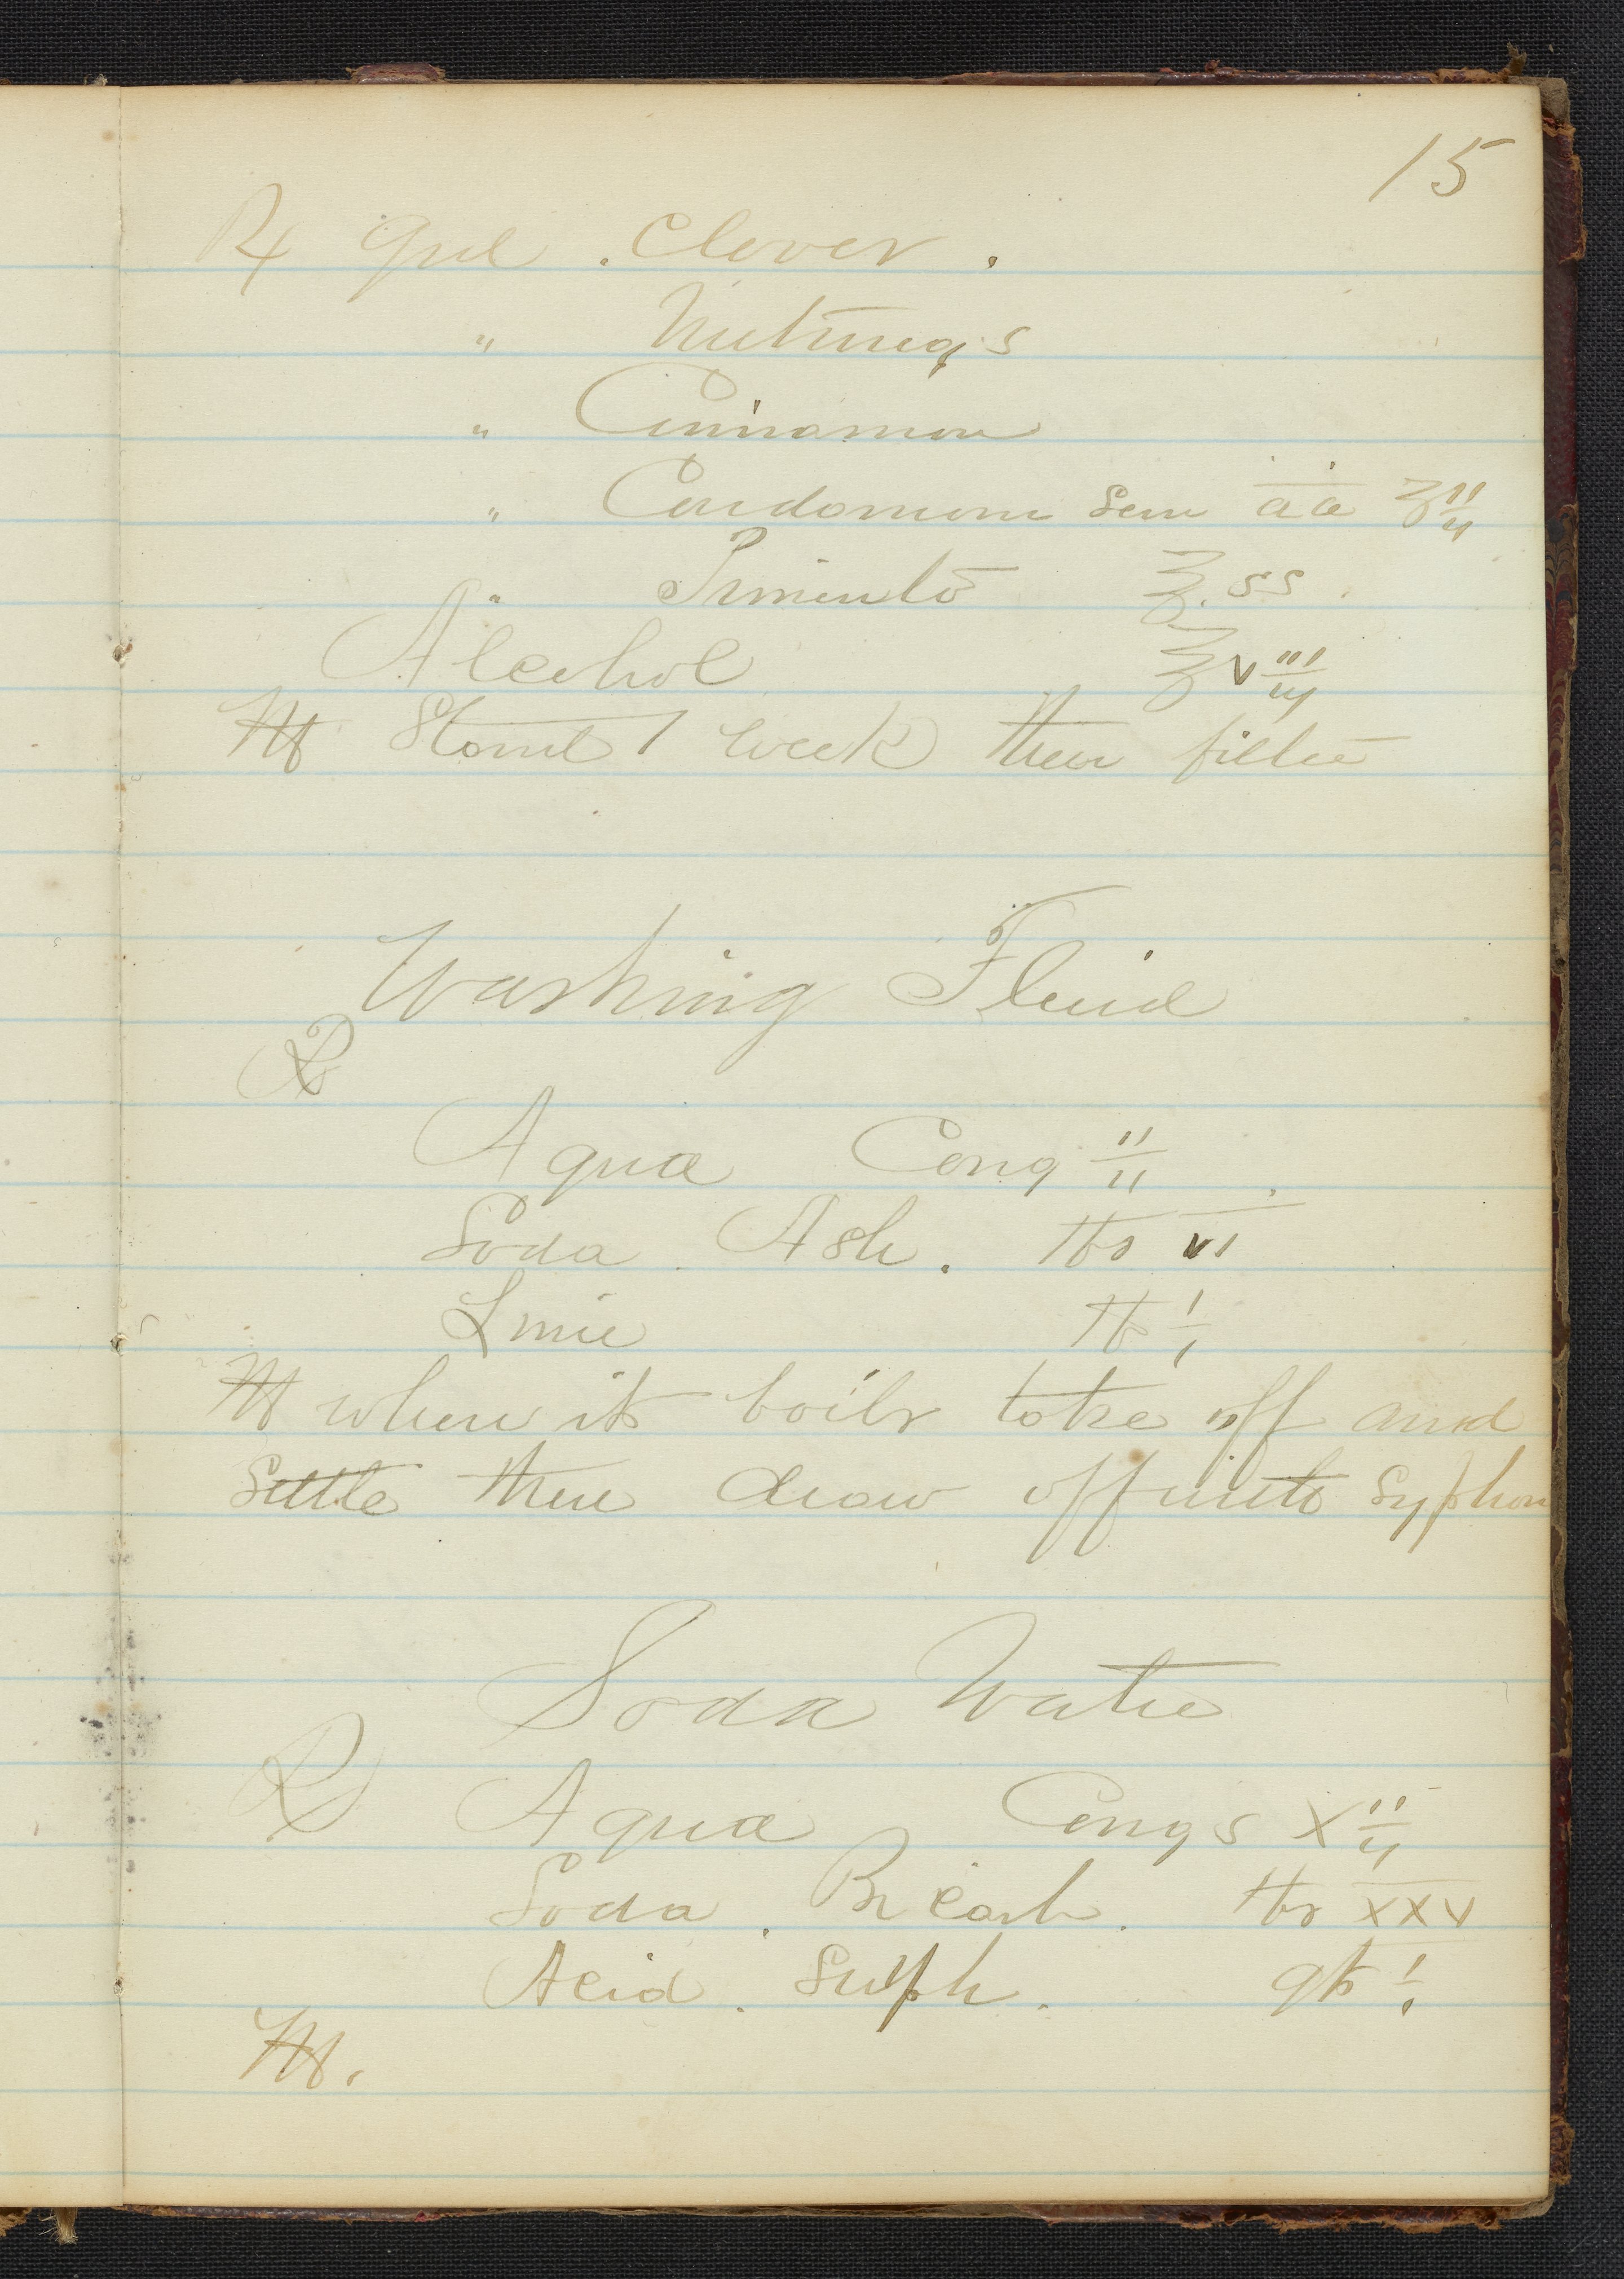 15
℞ Gul . Clover .
" Nutmegs
" Cinnamon
" Cardamom Sem āā ʒ ii
" Pimento ℥ ss .
Alcohol ℥ viii
M Stand 1 week then filter
Washing Fluid
℞
Aqua Cong ii
Soda Ash . ℔s vi
Lime ℔ i
M when it boils take off and
Settle then draw off with Syphon
Soda Water
℞ Aqua Congs xii
Soda . Bi Carb . ℔s xxv
Acid . Sulph . qts i
M.